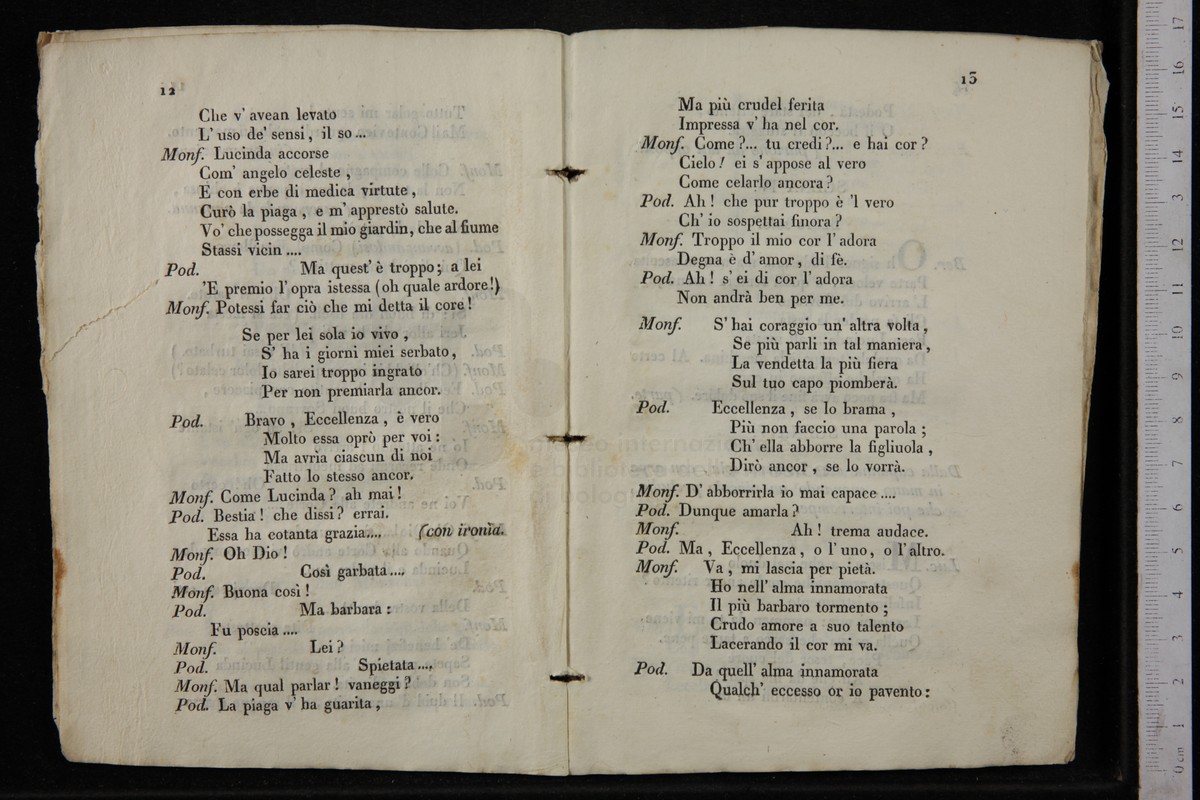 12
Che v' avean levato
L' uso de' sensi, il so...
Monf. Lucinda accorse
Com' angelo celeste,
E con erbe di medica virtute,
Curò la piaga, e m' apprestò salute.
Vo' che possegga il mio giardin, che al fiume
Stassi vicin....
Pod. Ma quest' è troppo; a lei
'E premio l' opra istessa (oh quale ardore!)
Monf. Potessi far ciò che mi detta il core!
Se per lei sola io vivo,
S' ha i giorni miei serbato,
Io sarei troppo ingrato
Per non premiarla ancor.
Pod. Bravo, Eccellenza, è vero
Molto essa oprò per voi:
Ma avrìa ciascun di noi
Fatto lo stesso ancor.
Monf. Come Lucinda? ah mai!
Pod. Bestia! che dissi? errai.
Essa ha cotanta grazia.... (con ironìa.
Monf. Oh Dio!
Pod. Così garbata....
Monf. Buona così!
Pod. Ma barbara:
Fu poscia....
Monf. Lei?
Pod. Spietata....
Monf. Ma qual parlar! vaneggi?
Pod. La piaga v' ha guarita,
13
Ma più crudel ferita
Impressa v' ha nel cor.
Monf. Come?... tu credi?... e hai cor?
Cielo! ei s' appose al vero
Come celarlo ancora?
Pod. Ah! che pur troppo è 'l vero
Ch' io sospettai finora?
Monf. Troppo il mio cor l' adora
Degna è d' amor, di fè.
Pod. Ah! s' ei di cor l' adora
Non andrà ben per me.
Monf. S' hai coraggio un' altra volta,
Se più parli in tal maniera,
La vendetta la più fiera
Sul tuo capo piomberà.
Pod. Eccellenza, se lo brama,
Più non faccio una parola;
Ch' ella abborre la figliuola,
Dirò ancor, se lo vorrà.
Monf. D' abborrirla io mai capace....
Pod. Dunque amarla?
Monf. Ah! trema audace.
Pod. Ma, Eccellenza, o l' uno, o l' altro.
Monf. Va, mi lascia per pietà.
Ho nell' alma innamorata
Il più barbaro tormento;
Crudo amore a suo talento
Lacerando il cor mi va.
Pod. Da quell' alma innamorata
Qualch' eccesso or io pavento: